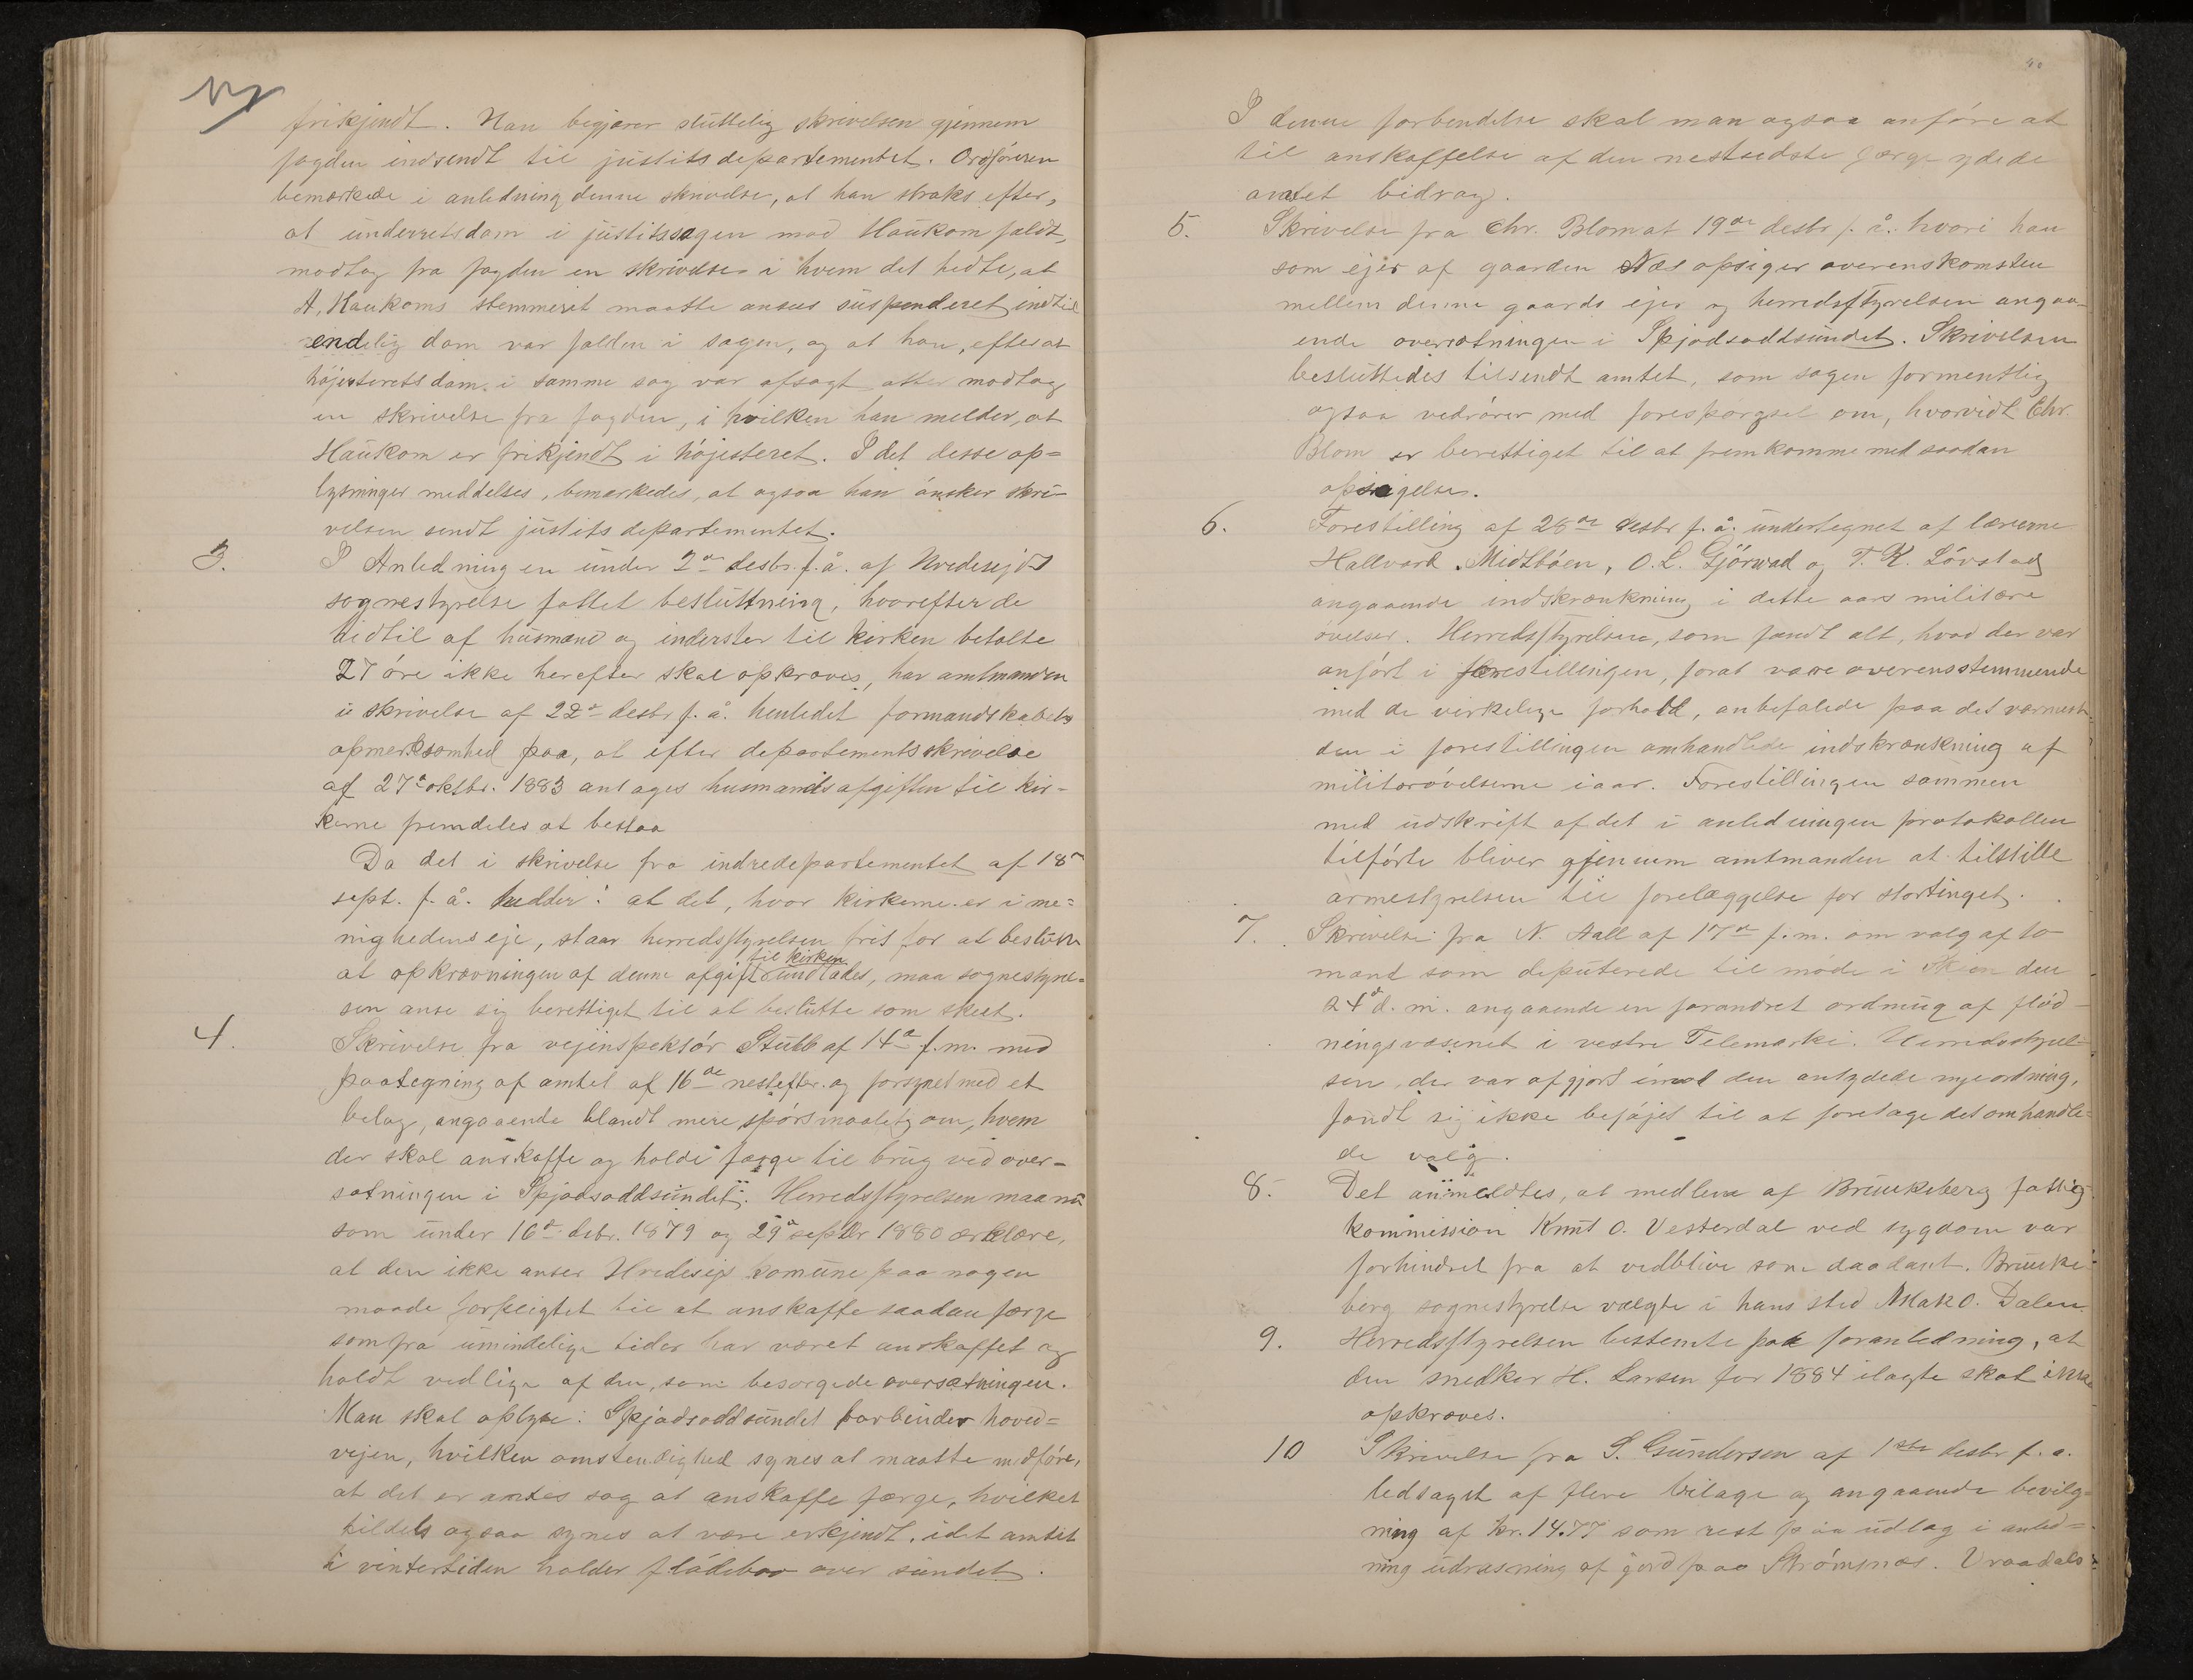 frikjendt. Han begjærer sluttelig skrivelsen gjennem
fogden indsendt til justitsdepartementet. Ordføreren
bemærkede i anledning denne skrivelse, at han straks efter,
at underretsdom i justitssagen mod Haukom faldt,
modtog fra fogden en skrivelse i hvem det hedte, at
A. Haukoms stemmeret maatte ansees suspenderet indtil
endelig dom var falden i sagen, og at han, efterat
højesteretsdom i samme sag var afsagt atter modtog
en skrivelse fra fogden, i hvilken han melder, at
Haukom er frikjendt i højesteret. I det desse op=
lysninger meddelses, bemærkedes, at ogsaa han ønsker skri-
velsen sendt justitsdepartementet.
3. I Anledning en under 2den desbr. f. å. af Hvidesejds
sognestyrelse fattet besluttning, hvorefter de
hidtil af husmænd og inderster til kirken betalte
27 øre ikke herefter skal opkræves, har amtmanden
i skrivelse af 22de desbr f. å. henledet formandskabets
opmerksomhed paa, at efter departementsskrivelse
af 27de oktbr. 1883 antages husmandsafgiften til kir-
kerne fremdeles at bestaa
Da det i skrivelse fra indredepartementet af 18de
sept. f. å. hedder: at det, hvor kirkerne er i me=
nighedens eje, staar herredsstyrelsen frit for at beslutte
at opkrævningen af denne afgift til kirken undlades, maa sognestyrel=
sen anse sig berettiget til at beslutte som skeet.
4. Skrivelse fra vejinspektør Stubb af 14de f. m. med
paategning af amtet af 16de nestefter. og forsynet med et
belag, angaaende blandt mere spørsmaalet om, hvem
der skal anskaffe og holde færge til brug ved over-
sætningen i Spjodsoddsundet. Herredsstyrelsen maa nu
som under 16de dsbr. 1879 og 29de septbr 1880 ærklære,
at den ikke anser Hvidesejd komune paa nogen
maade forpligtet til at anskaffe saadan færge
som fra umindelige tider har været anskaffet og
holdt vedlige af den, som besørgede oversætningen.
Man skal oplyse: Spjodsoddsundet forbinder hoved=
vejen, hvilken omstendighed synes at maatte medføre,
at det er amtes sag at anskaffe færge, hvilket
tildels ogsaa synes at være erkjendt, idet amtet
i vintertiden holder flådebro over sundet.
I denne forbendelse skal man ogsaa anføre at
til anskaffelse af den nestsidste færge ydede
amtet bidrag.
5. Skrivelse fra Chr. Blom at 19de desbr f. å. hvori han
som ejer af gaarden Næs opsiger overenskomsten
mellem denne gaards ejer og herredsstyrelsen angaa-
ende oversætningen i Spjodsoddsundet. Skrivelsen
besluttedes tilsendt amtet, som sagen formentlig
ogsaa vedrører med forespørgsel om, hvorvidt Chr.
Blom er berettiget til at fremkomme med saadan
opsigelse.
6. Forestilling af 28de desbr f. å. undertegnet af lærerne
Hallvard Midtbøen, O. L. Gjörvad og T. K. Løvstad
angaaende indskrænkning i dette aars militære
øvelser. Herredsstyrelsen, som fandt alt, hvad der var
anført i forestillingen, forat være overensstemmende
med de virkelige forhold, anbefalede paa det varmeste
den i forestillingen omhandlede indskrænkning af
militærøvelserne iaar. Forestillingen sammen
med udskrift af det i anledningen protokollen
tilførte bliver gjennem amtmanden at tilstille
armestyrelsen til forelæggelse for stortinget.
7. Skrivelse fra N. Aall af 17de f. m. om valg af to
mænd som deputerede til møde i Skien den
24de d. m. angaaende en forandret ordning af flød-
ningsvæsenet i vestre Telemarke. Herredsstyrel-
sen, der var afgjort imod den antydede nye ordning,
fandt sig ikke beføjet til at foretage det omhandle=
de valg.
8. Det anmeldtes, at medlem af Brunkeberg fattig
kommission Knut O. Vesterdal ved sygdom var
forhindret fra at vedblive som daadant. Brunke-
berg sognestyrelse valgte i hans sted Aslak O. Dalen.
9. Herredsstyrelsen bestemte paa foranledning, at
den snedker H. Larsen for 1884 ilagte skat ikke
opkræves.
10 Skrivelse fra S. Gundersen af 1ste desbr f. a.
ledsaget af flere bilage og angaaende bevilg-
ning af kr. 14.77 som rest paa udlag i anled=
ning udvisning af jord paa Strømnæs. Vraadals